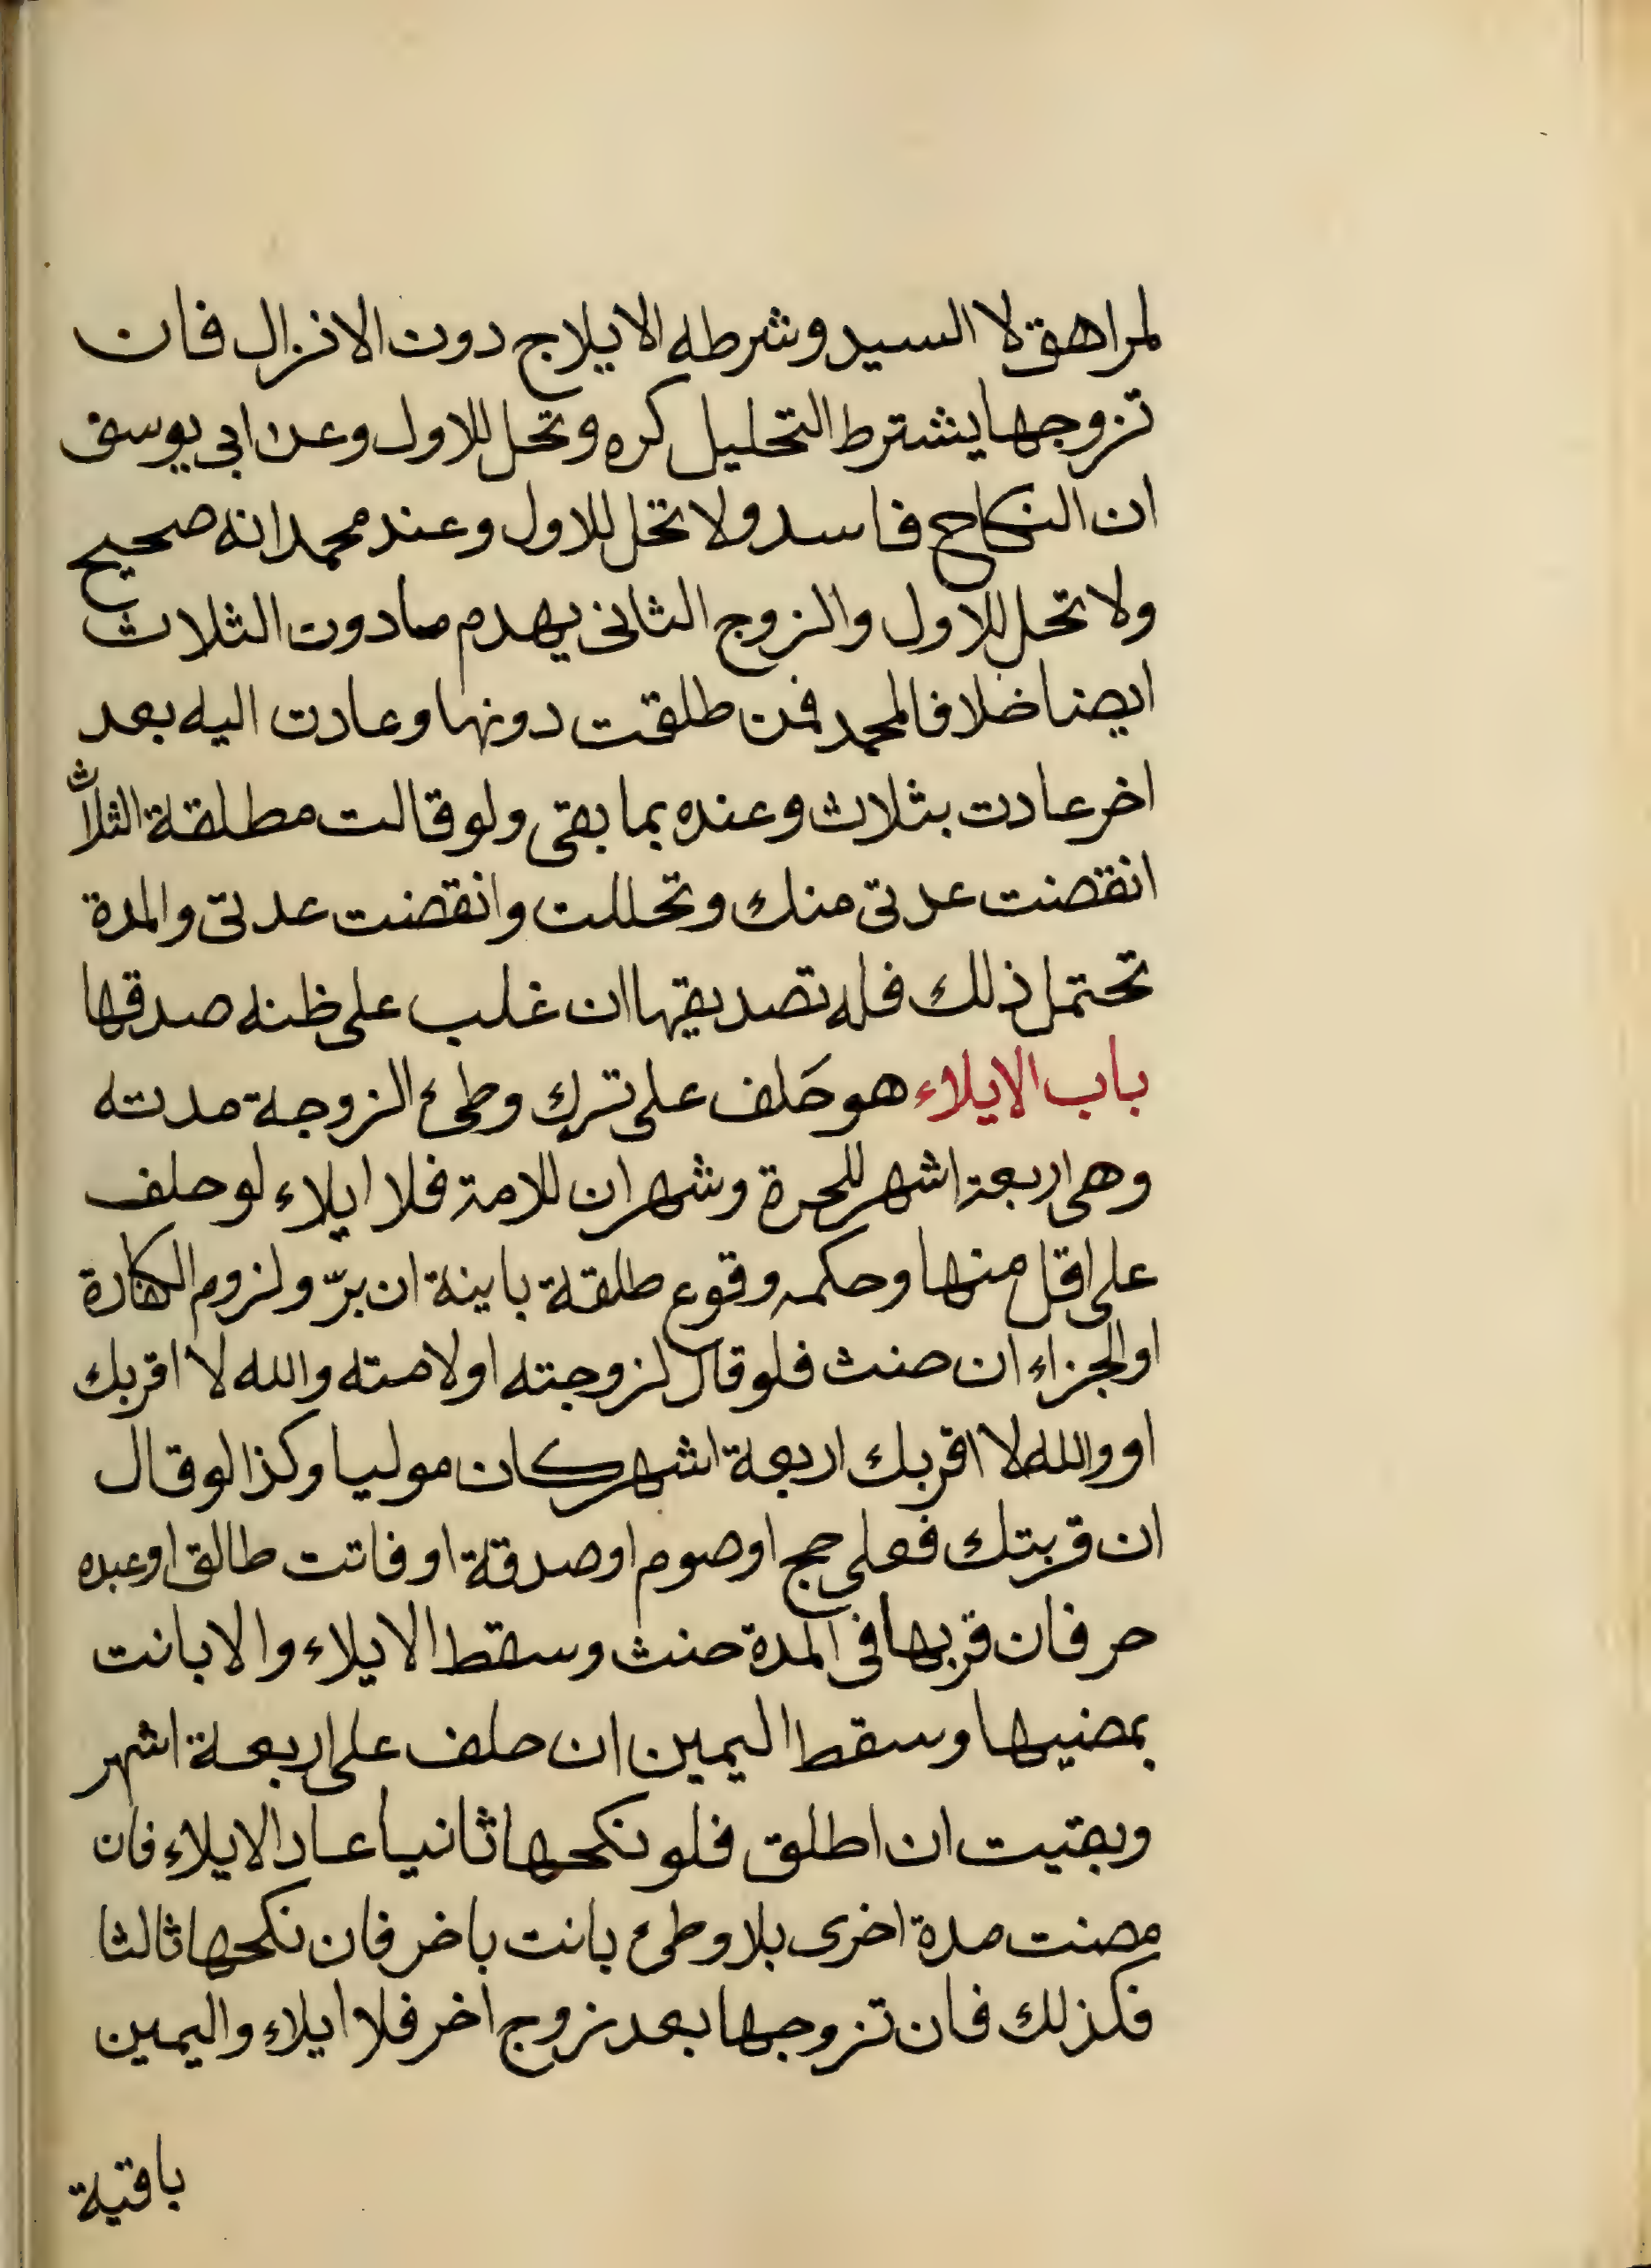 لمراهق لا السيد وشرطه الايلاج دون الانزال فان
تزوجها يشترط التحليل كره وتحل للاول وعن ابي يوسف
ان النكاح فاسد ولا تحل للاول وعند محمد انه صحيح
ولا تحل للاول والزوج الثانى يهدم مادون الثلاث
ايضا خلافا لمحمد فمن طلقت دونها وعادت اليه بعد
اخر عادت بثلاث وعنده بما بقى ولو قالت مطلقة الثلاث
انقضت عدتى منك وتحللت وانقضت عدتى والمدة
تحتمل ذلك فله تصديقها ان غلب على ظنه صدقها
باب الايلاء هو حَلف على ترك وطئ الزوجة مدته
وهى اربعة اشهر للحرة وشهران للامة فلا ايلاء لو حلف
على اقل منها وحكمه وقوع طلقة باينة ان برّ ولزوم الكفارة
او الجزاء ان حنث فلو قال لزوجته او لامته والله لا اقربك
او والله لا اقربك اربعة اشهر كان موليا وكذا لو قال
ان قربتك فعلى حج او صوم او صدقة او فانت طالق او عبده
حر فان قربها فى المدة حنث وسقط الايلاء والا بانت
بمضيها وسقط اليمين ان حلف على اربعة اشهر
وبقيت ان اطلق فلو نكحها ثانيا عاد الايلاء فان
مضت مدة اخرى بلا وطئ بانت باخر فان نكحها ثالثا
فكذلك فان تزوجها بعد زوج اخر فلا ايلاء واليمين
باقية